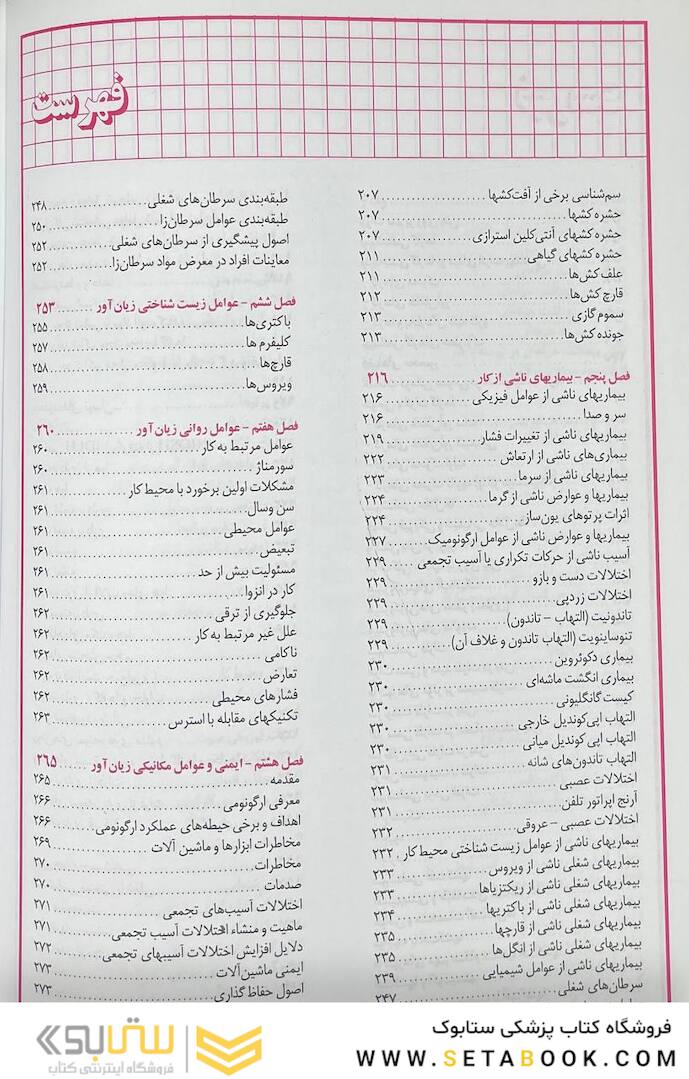 فهرست
سم‌شناسی برخی از آفت‌کشها ........ ۲۰۷
حشره کشها ........ ۲۰۷
حشره کشهای آنتی‌کلین استرازی ........ ۲۰۷
حشره کشهای گیاهی ........ ۲۱۱
علف‌کش‌ها ........ ۲۱۱
قارچ کش‌ها ........ ۲۱۲
سموم گازی ........ ۲۱۳
جونده کش‌ها ........ ۲۱۳
فصل پنجم - بیماریهای ناشی از کار ........ ۲۱۶
بیماریهای ناشی از عوامل فیزیکی ........ ۲۱۶
سر و صدا ........ ۲۱۶
بیماریهای ناشی از تغییرات فشار ........ ۲۱۹
بیماری‌های ناشی از ارتعاش ........ ۲۲۲
بیماریهای ناشی از سرما ........ ۲۲۳
بیماریها و عوارض ناشی از گرما ........ ۲۲۴
اثرات پرتوهای یون‌ساز ........ ۲۲۴
بیماریها و عوارض ناشی از عوامل ارگونومیک ........ ۲۲۷
آسیب ناشی از حرکات تکراری یا آسیب تجمعی ........ ۲۲۹
اختلالات دست و بازو ........ ۲۲۹
اختلالات زردپی ........ ۲۲۹
تاندونیت (التهاب - تاندون) ........ ۲۲۹
تنوساینویت (التهاب تاندون و غلاف آن) ........ ۲۲۹
بیماری دکوئروین ........ ۲۳۰
بیماری انگشت ماشه‌ای ........ ۲۳۰
کیست گانگلیونی ........ ۲۳۰
التهاب اپی‌کوندیل خارجی ........ ۲۳۰
التهاب اپی کوندیل میانی ........ ۲۳۰
التهاب تاندون‌های شانه ........ ۲۳۱
اختلالات عصبی ........ ۲۳۱
آرنج اپراتور تلفن ........ ۲۳۱
اختلالات عصبی - عروقی ........ ۲۳۲
بیماریهای ناشی از عوامل زیست شناختی محیط کار ........ ۲۳۲
بیماریهای شغلی ناشی از ویروس ........ ۲۳۳
بیماریهای شغلی ناشی از ریکتزیاها ........ ۲۳۳
بیماریهای شغلی ناشی از باکتریها ........ ۲۳۴
بیماریهای شغلی ناشی از قارچها ........ ۲۳۵
بیماریهای شغلی ناشی از انگل‌ها ........ ۲۳۵
بیماریهای ناشی از عوامل شیمیایی ........ ۲۳۹
سرطان‌های شغلی ........ ۲۴۷
طبقه‌بندی سرطان‌های شغلی ........ ۲۴۸
طبقه‌بندی عوامل سرطان‌زا ........ ۲۵۰
اصول پیشگیری از سرطان‌های شغلی ........ ۲۵۲
معاینات افراد در معرض مواد سرطان‌زا ........ ۲۵۲
فصل ششم - عوامل زیست شناختی زیان آور ........ ۲۵۳
باکتری‌ها ........ ۲۵۵
کلیفرم ها ........ ۲۵۷
قارچ‌ها ........ ۲۵۸
ویروس‌ها ........ ۲۵۹
فصل هفتم - عوامل روانی زیان آور ........ ۲۶۰
عوامل مرتبط به کار ........ ۲۶۰
سورمناژ ........ ۲۶۰
مشکلات اولین برخورد با محیط کار ........ ۲۶۱
سن وسال ........ ۲۶۱
عوامل محیطی ........ ۲۶۱
تبعیض ........ ۲۶۱
مسئولیت بیش از حد ........ ۲۶۱
کار در انزوا ........ ۲۶۱
جلوگیری از ترقی ........ ۲۶۲
علل غیر مرتبط به کار ........ ۲۶۲
ناکامی ........ ۲۶۲
تعارض ........ ۲۶۲
فشارهای محیطی ........ ۲۶۲
تکنیکهای مقابله با استرس ........ ۲۶۳
فصل هشتم - ایمنی و عوامل مکانیکی زیان آور ........ ۲۶۵
مقدمه ........ ۲۶۵
معرفی ارگونومی ........ ۲۶۶
اهداف و برخی حیطه‌های عملکرد ارگونومی ........ ۲۶۶
مخاطرات ابزارها و ماشین آلات ........ ۲۶۹
مخاطرات ........ ۲۷۰
صدمات ........ ۲۷۰
اختلالات آسیب‌های تجمعی ........ ۲۷۱
ماهیت و منشاء اختلالات آسیب تجمعی ........ ۲۷۱
دلایل افزایش اختلالات آسیبهای تجمعی ........ ۲۷۲
ایمنی ماشین‌آلات ........ ۲۷۳
اصول حفاظ گذاری ........ ۲۷۳
فروشگاه کتاب پزشکی ستابوک
WWW.SETABOOK.COM
ستابوک
فروشگاه اینترنتی کتاب